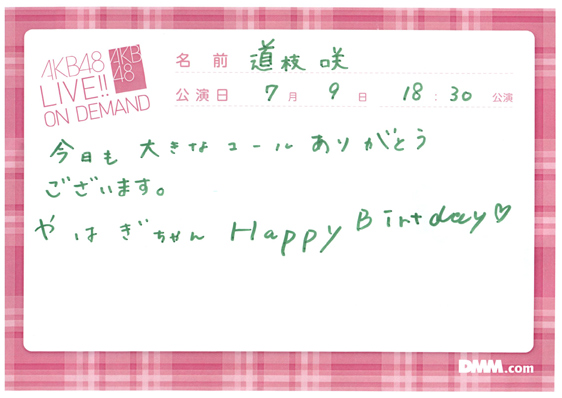 AKB48
LIVE!!
ON DEMAND
AKB
48
名前 道枝咲
公演日 7月 9日 18:30 公演
今日も 大きなコール ありがとう
ございます。
やはぎちゃん Happy Birtday♡
DMM.com